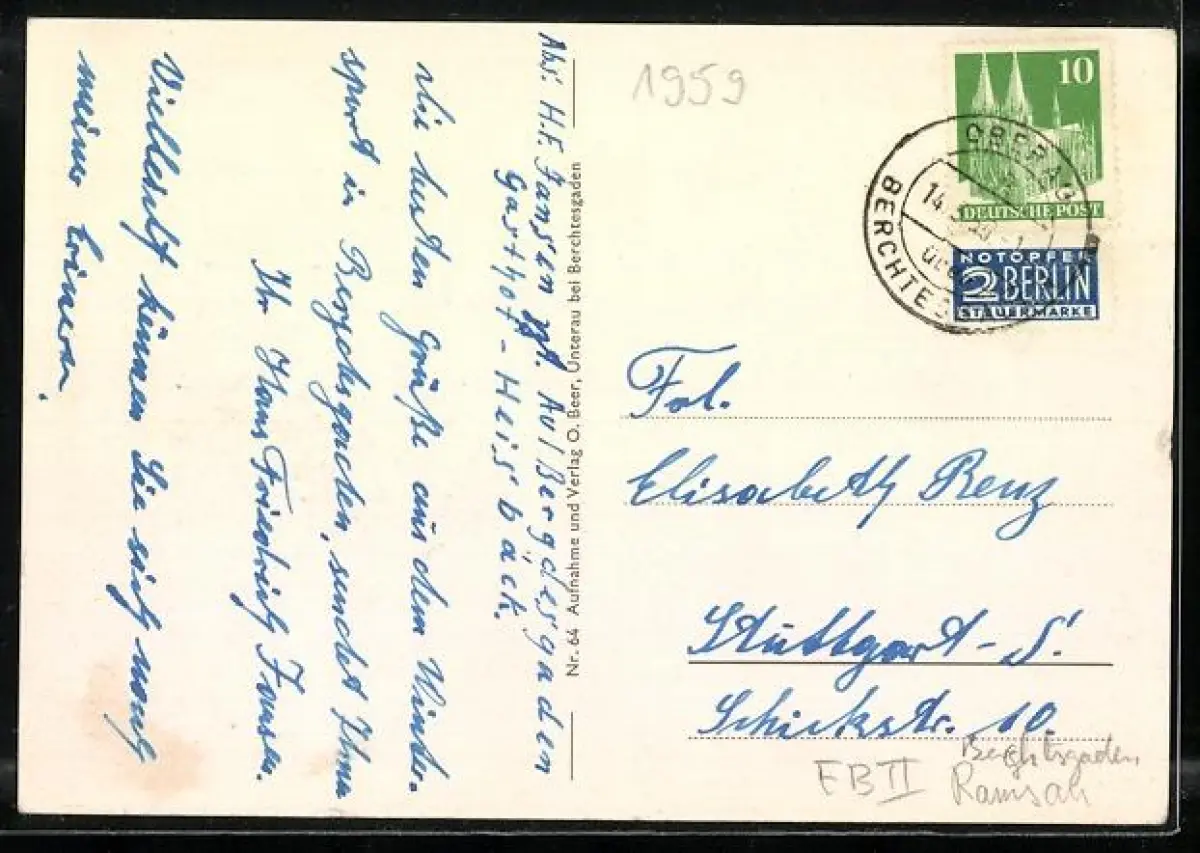 Abs: H.F. Jansen zt. Au/Bergdesgaden
Gasthof-Heisbäck.
die besten Grüße aus dem Winter-
sport in Berjchsgaden, sendet Ihnen
Ihr Hans Friedrich Jansen.
Vielleicht können Sie sich noch
meiner erinern.
Nr. 64 Aufnahme und Verlag O. Beer, Unterau bei Berchtesgaden
1959
10
DEUTSCHE POST
NOTOPFER
2 BERLIN
STEUERMARKE
OBERAU
14.
BERCHTESGADEN
Frl.
Elisabeth Renz
Stuttgart-S.
Schickstr. 10.
Berchtsgaden
FB II Ramsau